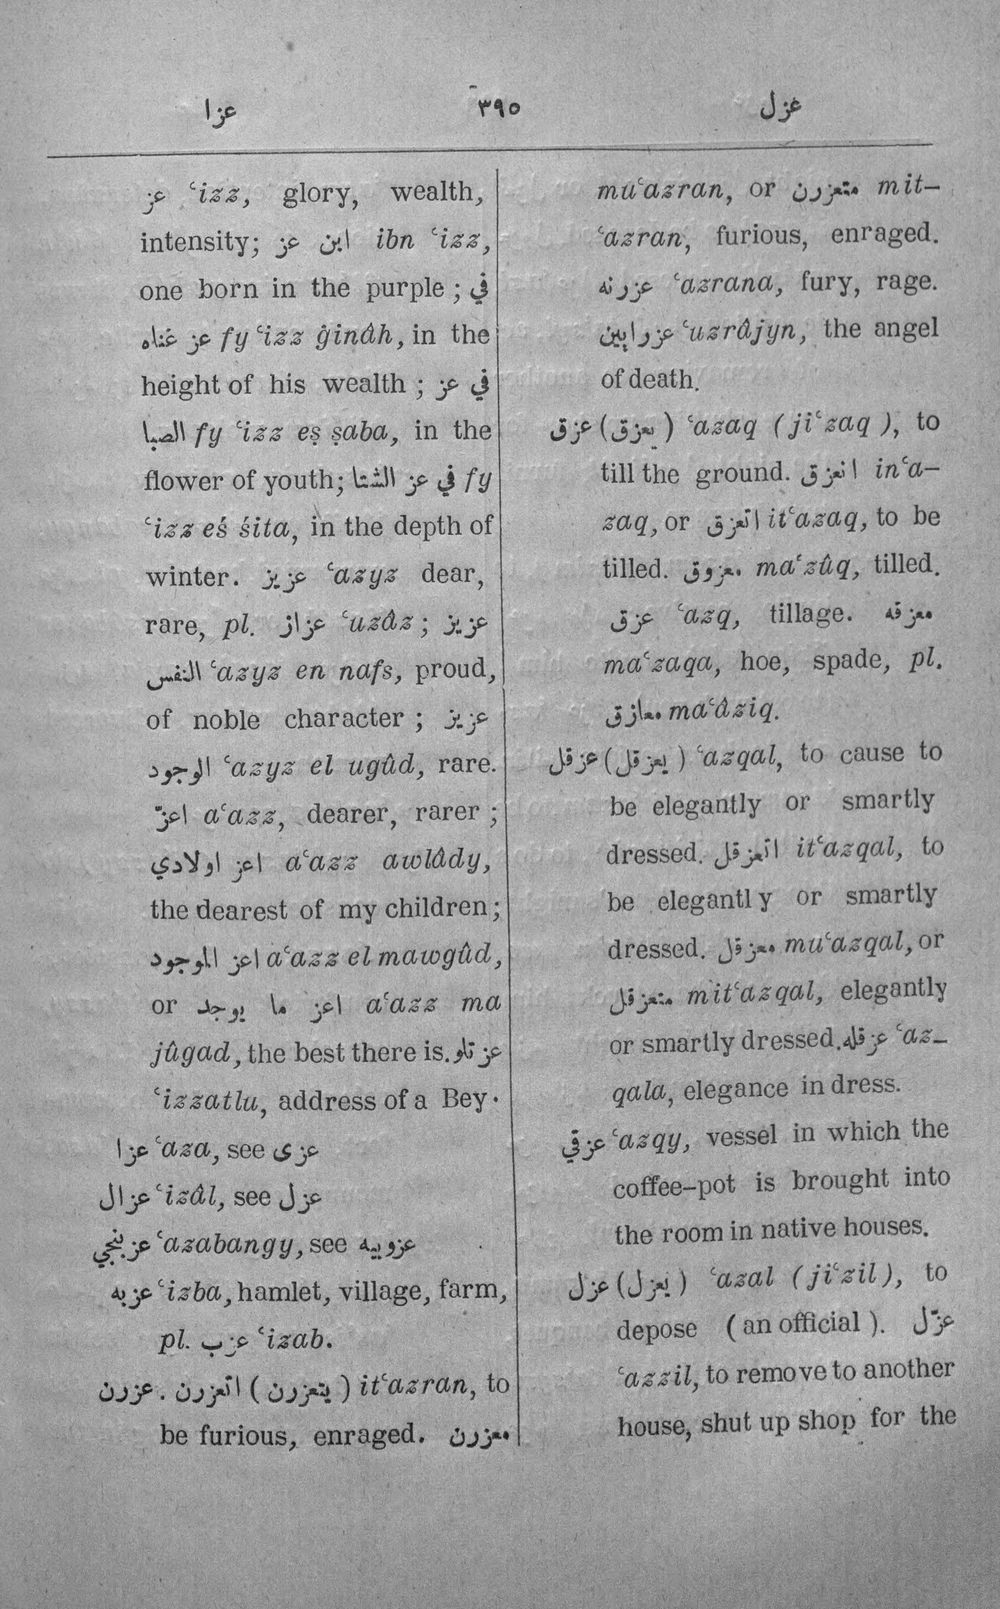 عزا ٣٩٥ عزل
عز ʿizz, glory, wealth,
intensity; ابن عز ibn ʿizz,
one born in the purple ; في
عز غناه fy ʿizz ġinâh, in the
height of his wealth ; في عز
الصبا fy ʿizz eṣ ṣaba, in the
flower of youth; في عز الشتا fy
ʿizz eś śita, in the depth of
winter. عزيز ʿazyz dear,
rare, pl. عزاز ʿuzâz ; عزيز
النفس ʿazyz en nafs, proud,
of noble character ; عزيز
الوجود ʿazyz el ugûd, rare.
اعزّ aʿazz, dearer, rarer ;
اعز اولادي aʿazz awlâdy,
the dearest of my children;
اعز الموجود aʿazz el mawgûd,
or اعز ما يوجد aʿazz ma
jûgad, the best there is. عزتلو
ʿizzatlu, address of a Bey.
عزا ʿaza, see عزى
عزال ʿizâl, see عزل
عزبنجي ʿazabangy, see عزوبيه
عزبه ʿizba, hamlet, village, farm,
pl. عزب ʿizab.
عزرن . اتعزرن ( يتعزرن ) itʿazran, to
be furious, enraged. معزرن
muʿazran, or متعزرن mit-
ʿazran, furious, enraged.
عزرنه ʿazrana, fury, rage.
عزرايين ʿuzrâjyn, the angel
of death.
عزق ( يعزق ) ʿazaq ( jiʿzaq ), to
till the ground. انعزق inʿa-
zaq, or اتعزق itʿazaq, to be
tilled. معزوق maʿzûq, tilled.
عزق ʿazq, tillage. معزقه
maʿzaqa, hoe, spade, pl.
معازق maʿâziq.
عزقل ( يعزقل ) ʿazqal, to cause to
be elegantly or smartly
dressed. اتعزقل itʿazqal, to
be elegantly or smartly
dressed. معزقل muʿazqal, or
متعزقل mitʿazqal, elegantly
or smartly dressed. عزقله ʿaz-
qala, elegance in dress.
عزقي ʿazqy, vessel in which the
coffee-pot is brought into
the room in native houses.
عزل ( يعزل ) ʿazal ( jiʿzil ), to
depose ( an official ). عزّل
ʿazzil, to remove to another
house, shut up shop for the